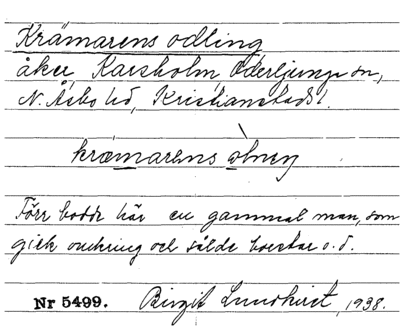 Krämarens odling
åker, Karsholm, Oderljunga sn,
N. Åsbo hd, Kristianstads l.
kræmarens
Förr bodde här en gammal man, som
gick omkring och sålde borstar o. d.
Nr 5499. Birgit Lundkvist, 1938.